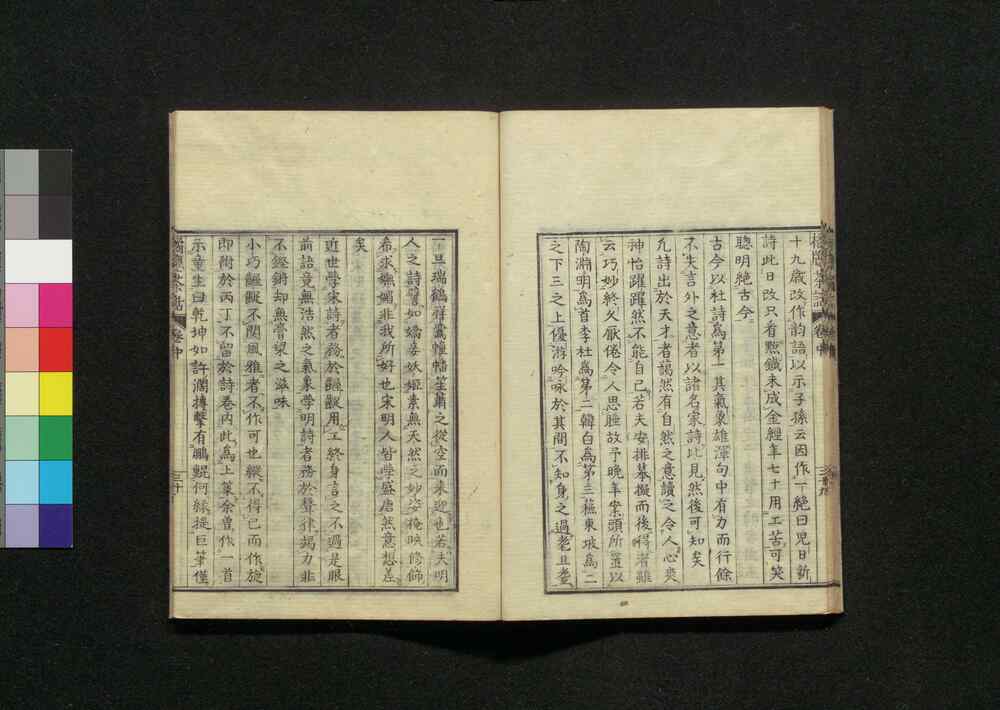 十九歲改作韵語以示子孫云因作一絕曰兒日新
詩此日改只看點鐵未成金經年七十用工苦可笑
聰明絕古今
古今以杜詩爲第一其氣象雄渾句中有力而行餘
不失言外之意者以諸名家詩比見然後可知矣
凡詩出於天才者藹然有自然之意讀之令人心爽
神怡躍躍然不能自已若夫安排摹擬而後得者雖
云巧妙終久厭倦令人思睡故予晚年案頭所置以
陶淵明爲首李杜爲第二韓白爲第三蘇東坡爲二
之下三之上優游吟咏於其間不知身之過耄且耋
一旦瑞鶴祥鸞幢幡笙蕭之從空而來迎也若夫明
人之詩譬如嬌妾妖姬素無天然之妙姿掩映修飾
希求嫵媚非我所好也宋明人皆學盛唐然意想差
矣
近世學宋詩者務於
用工終身言之不過是眼
前語竟無浩然之氣象學明詩者務於聲律竭力非
不鏗鏘却無膏粱之滋味
小巧
不關風雅者不作可也縱不得已而作旋
即附於丙丁不留於詩卷內此爲上策余曽作一首
示童生曰乾坤如許濶摶擊有鵬鯤何緣提巨筆僅
茶話
卷中
三十